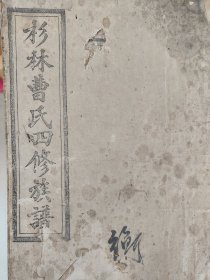 杉林曹氏四修族譜
衡